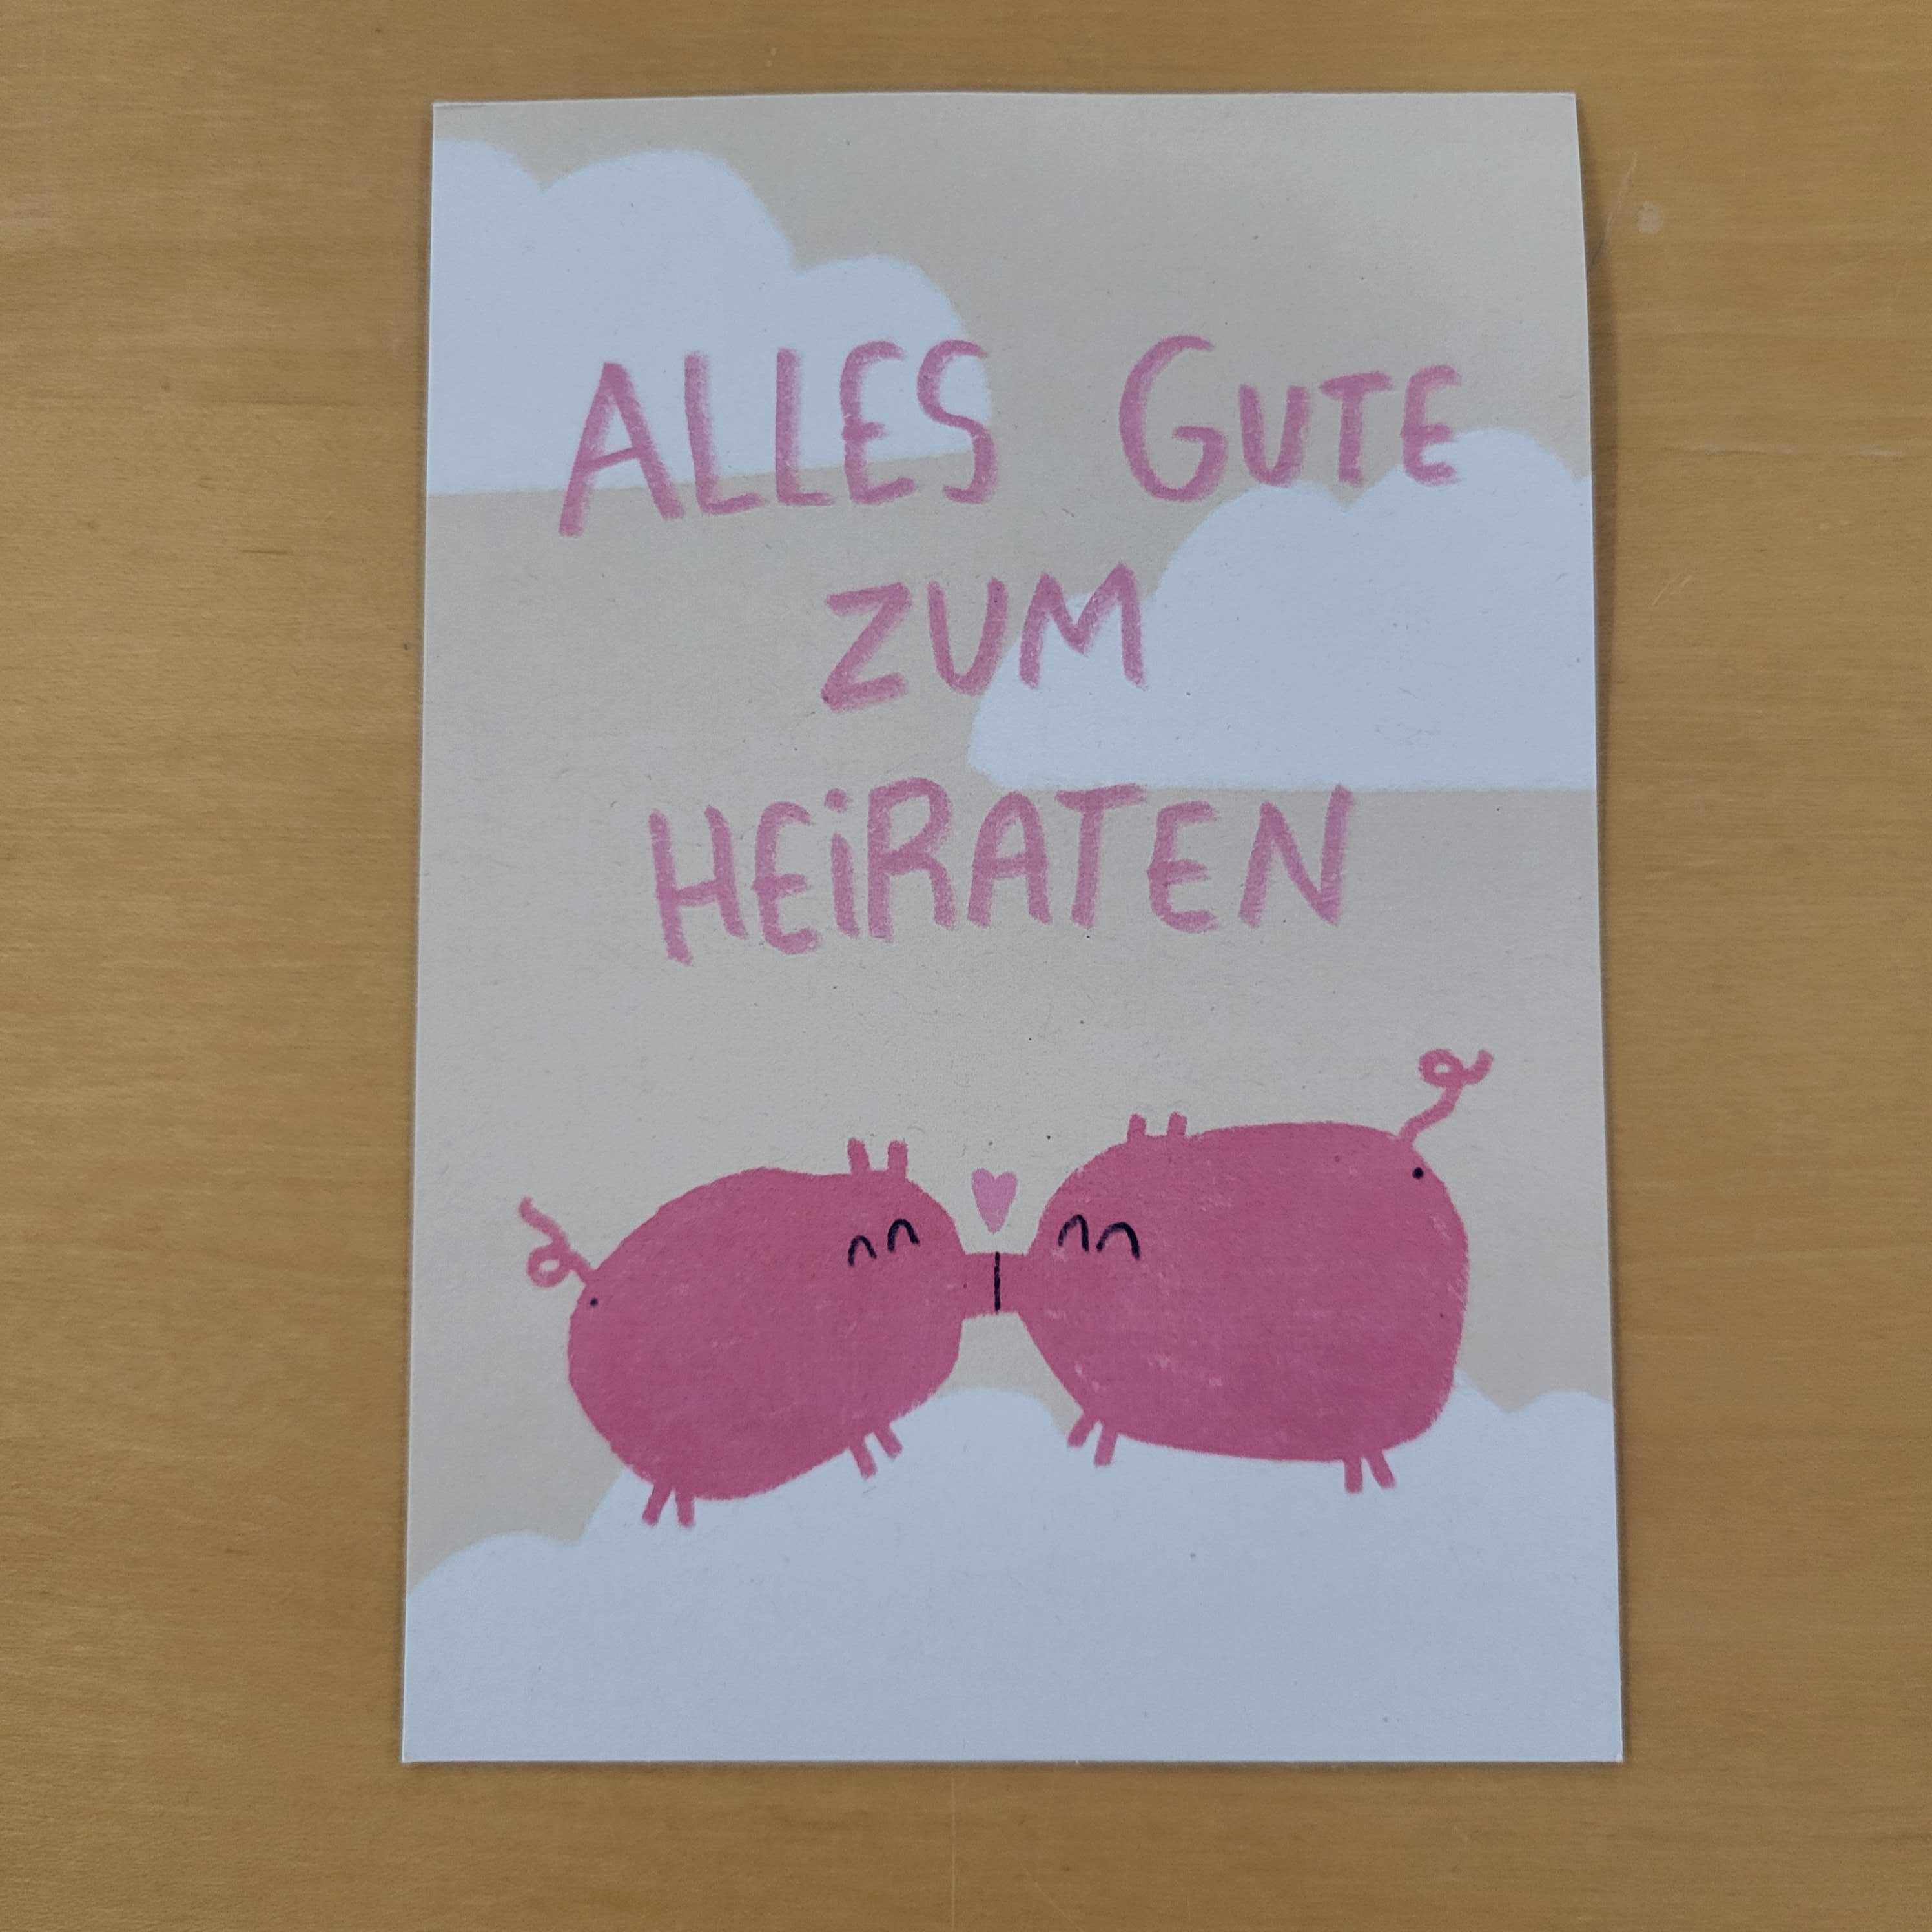 ALLES GUTE
ZUM
HEiRATEN